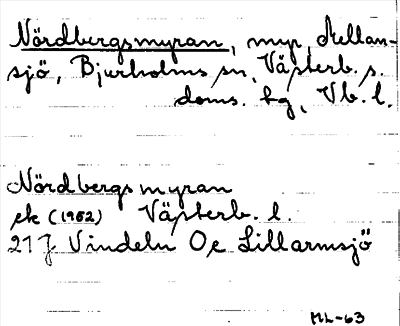 Nördbergsmyran, myr, Mellan-
sjö, Bjurholms sn, Västerb. s.
doms. hg, Vb. l.
Nördbergsmyran
ek (1962) Västerb. l.
21 J Vindeln Oe Lillarmsjö
ML-63